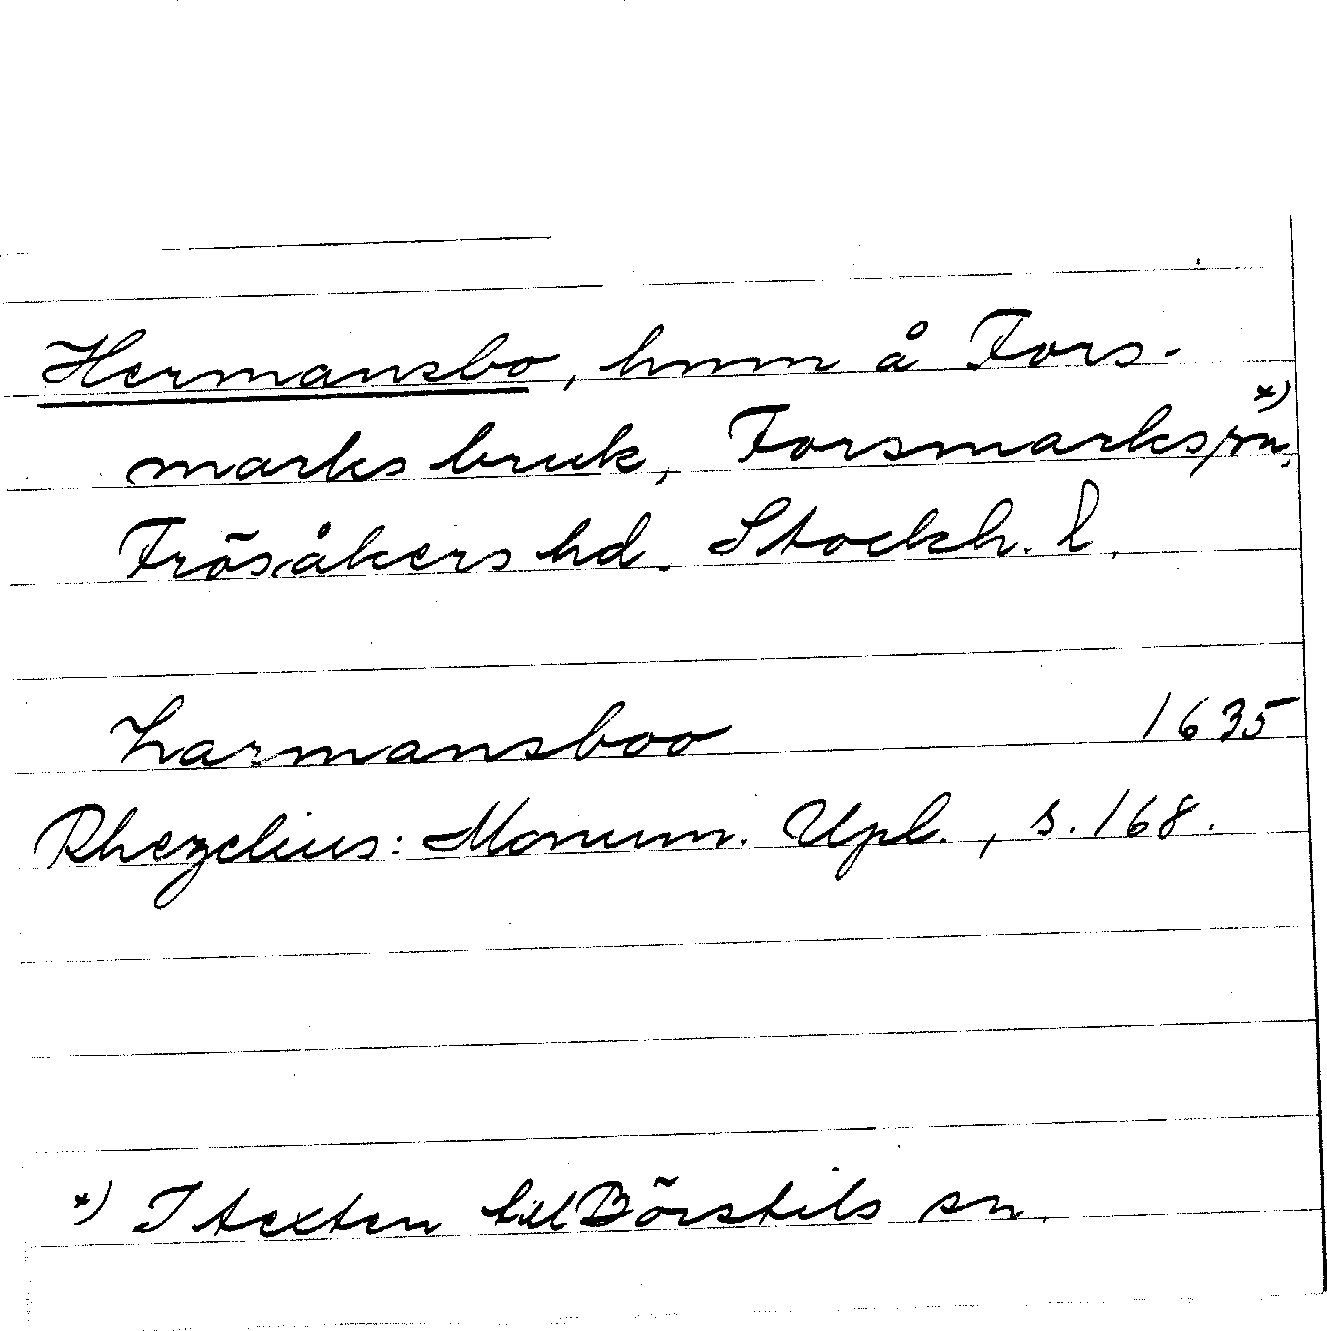 Hermansbo, hmm å Fors-
marks bruk, Forsmarks sn, *)
Frösåkers hd. Stockh. l.
harmansboo 1635
Rhezelius: Monum. Upl., s. 168.
*) I texten till Börstils sn.